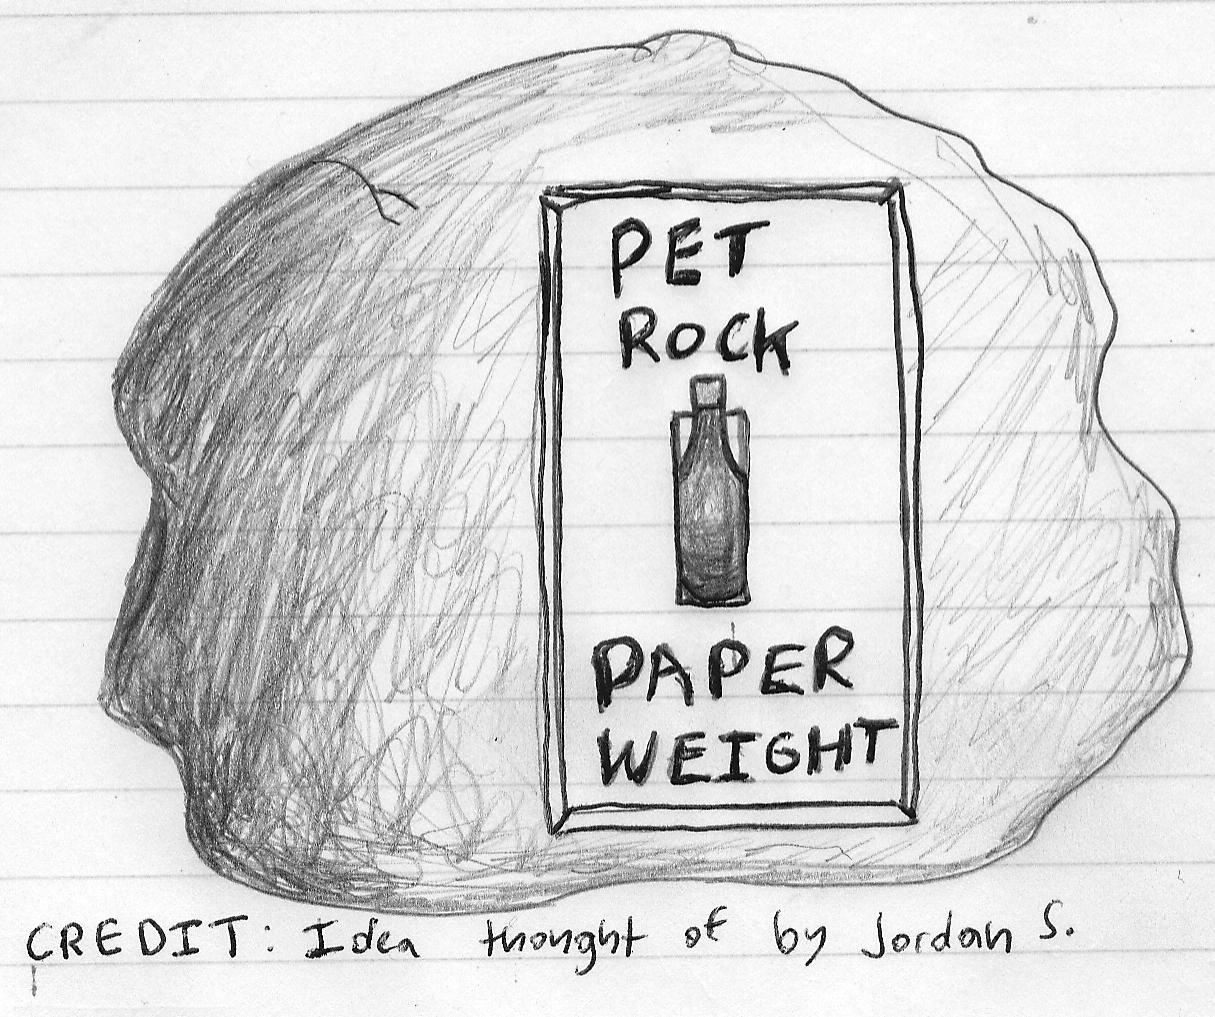 PET
ROCK
PAPER
WEIGHT
CREDIT: Idea thought of by Jordan S.